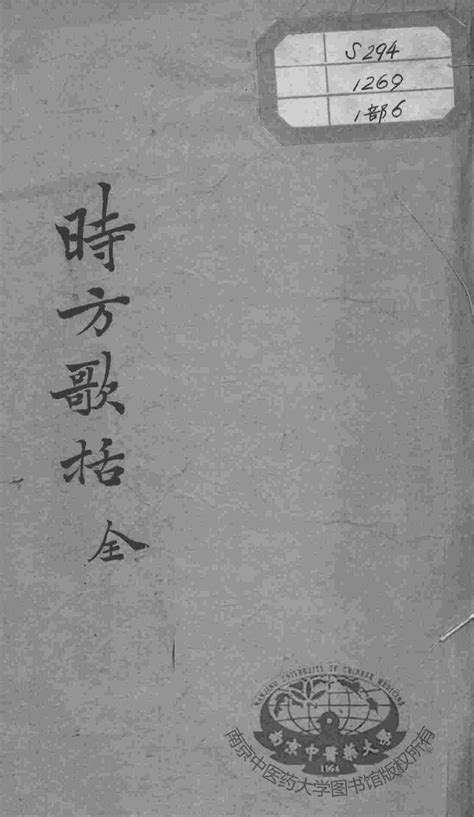 S294
1269
1部6
時方歌括 全
NANJING UNIVERSITY OF CHINESE MEDICINE
南京中醫藥大學
1954
南京中医药大学图书馆版权所有